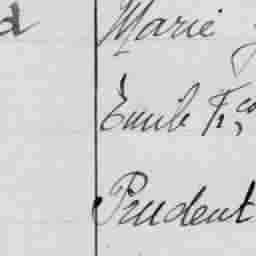 d Marie
Emile Fçs
Prudent